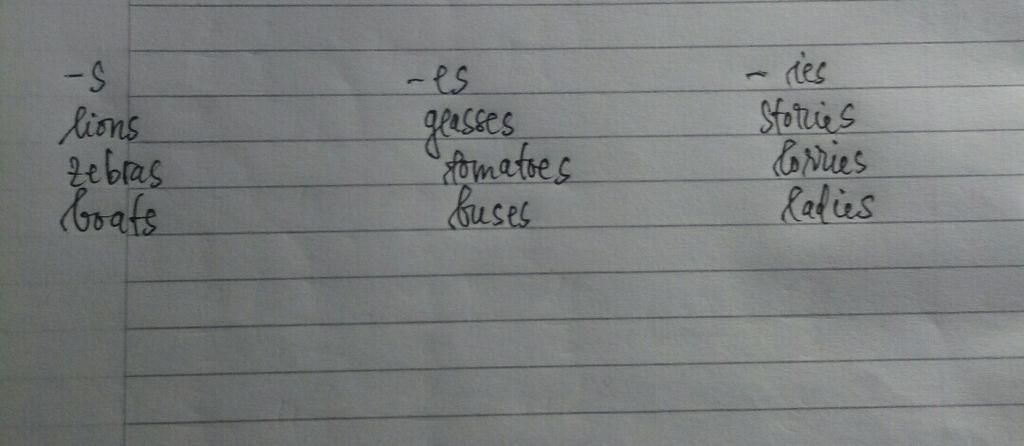 -s -es - ies
lions glasses stories
zebras tomatoes lorries
boats buses ladies